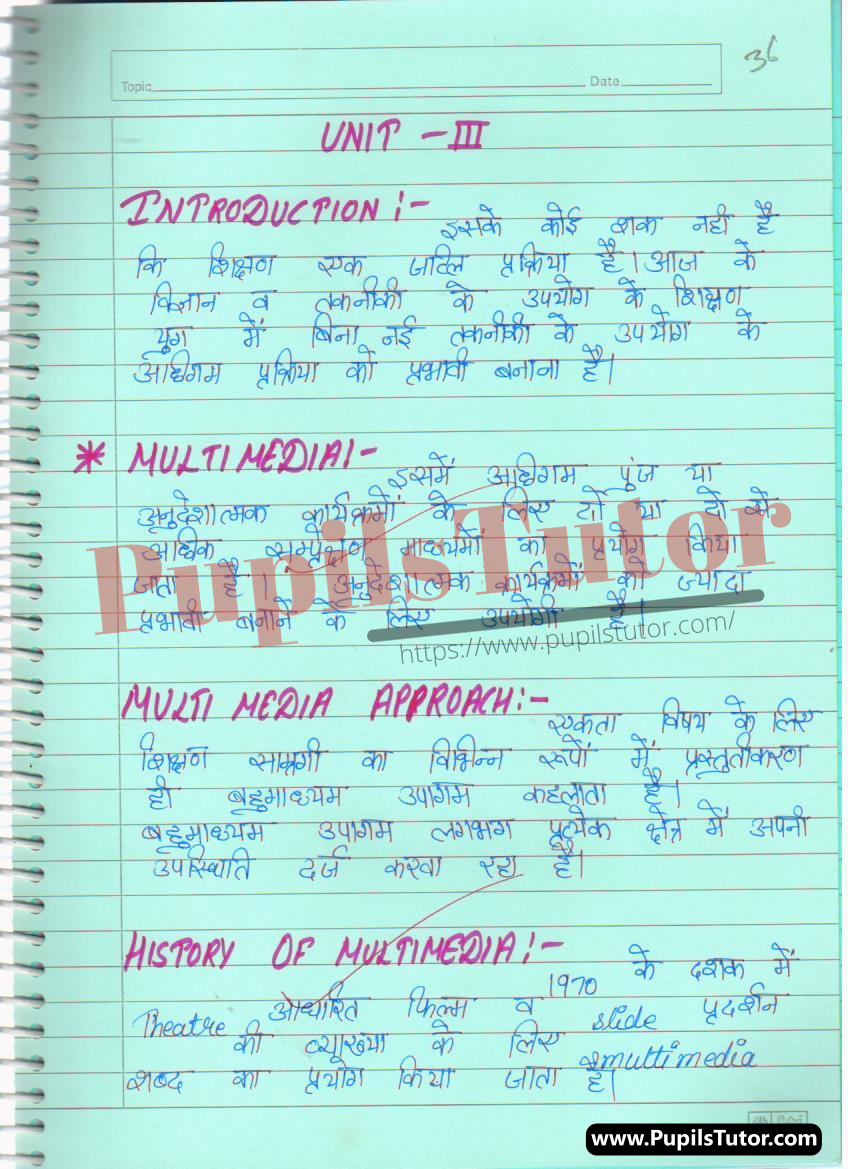 36
Topic Date
UNIT - III
INTRODUCTION :-
इसके कोई शक नही है
कि शिक्षण एक जटिल प्रक्रिया है। आज के
विज्ञान व तकनीकी के उपयोग के शिक्षण
युग में बिना नई तकनीकी के उपयोग के
अधिगम प्रक्रिया को प्रभावी बनाना है।
* MULTIMEDIA :-
इसमें अधिगम पुंज या
अनुदेशात्मक कार्यक्रमों के लिए दो या दो से
अधिक सम्प्रेक्षण माध्यमों का प्रयोग किया
जाता है। अनुदेशात्मक कार्यक्रमों को ज्यादा
प्रभावी बनाने के लिए उपयोगी है।
PupilsTutor
https://www.pupilstutor.com/
MULTI MEDIA APPROACH :-
एकता विषय के लिए
शिक्षण सामग्री का विभिन्न रूपों में प्रस्तुतीकरण
ही बहुमाध्यम उपागम कहलाता है।
बहुमाध्यम उपागम लगभग प्रत्येक क्षेत्र में अपनी
उपस्थिति दर्ज करवा रहा है।
HISTORY OF MULTIMEDIA :-
1970 के दशक में
Theatre आधारित फिल्म व slide प्रदर्शन
की व्याख्या के लिए multimedia
शब्द का प्रयोग किया जाता है।
www.PupilsTutor.com